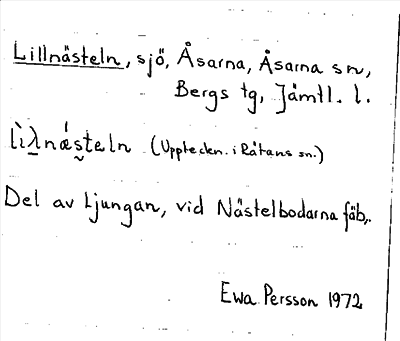 Lillnästeln, sjö, Åsarna, Åsarna sn,
Bergs tg, Jämtl. l.
lìλ̲nǽs̮teln (Uppteckn. i Råtans sn.)
Del av Ljungan, vid Nästelbodarna fäb.
Ewa Persson 1972